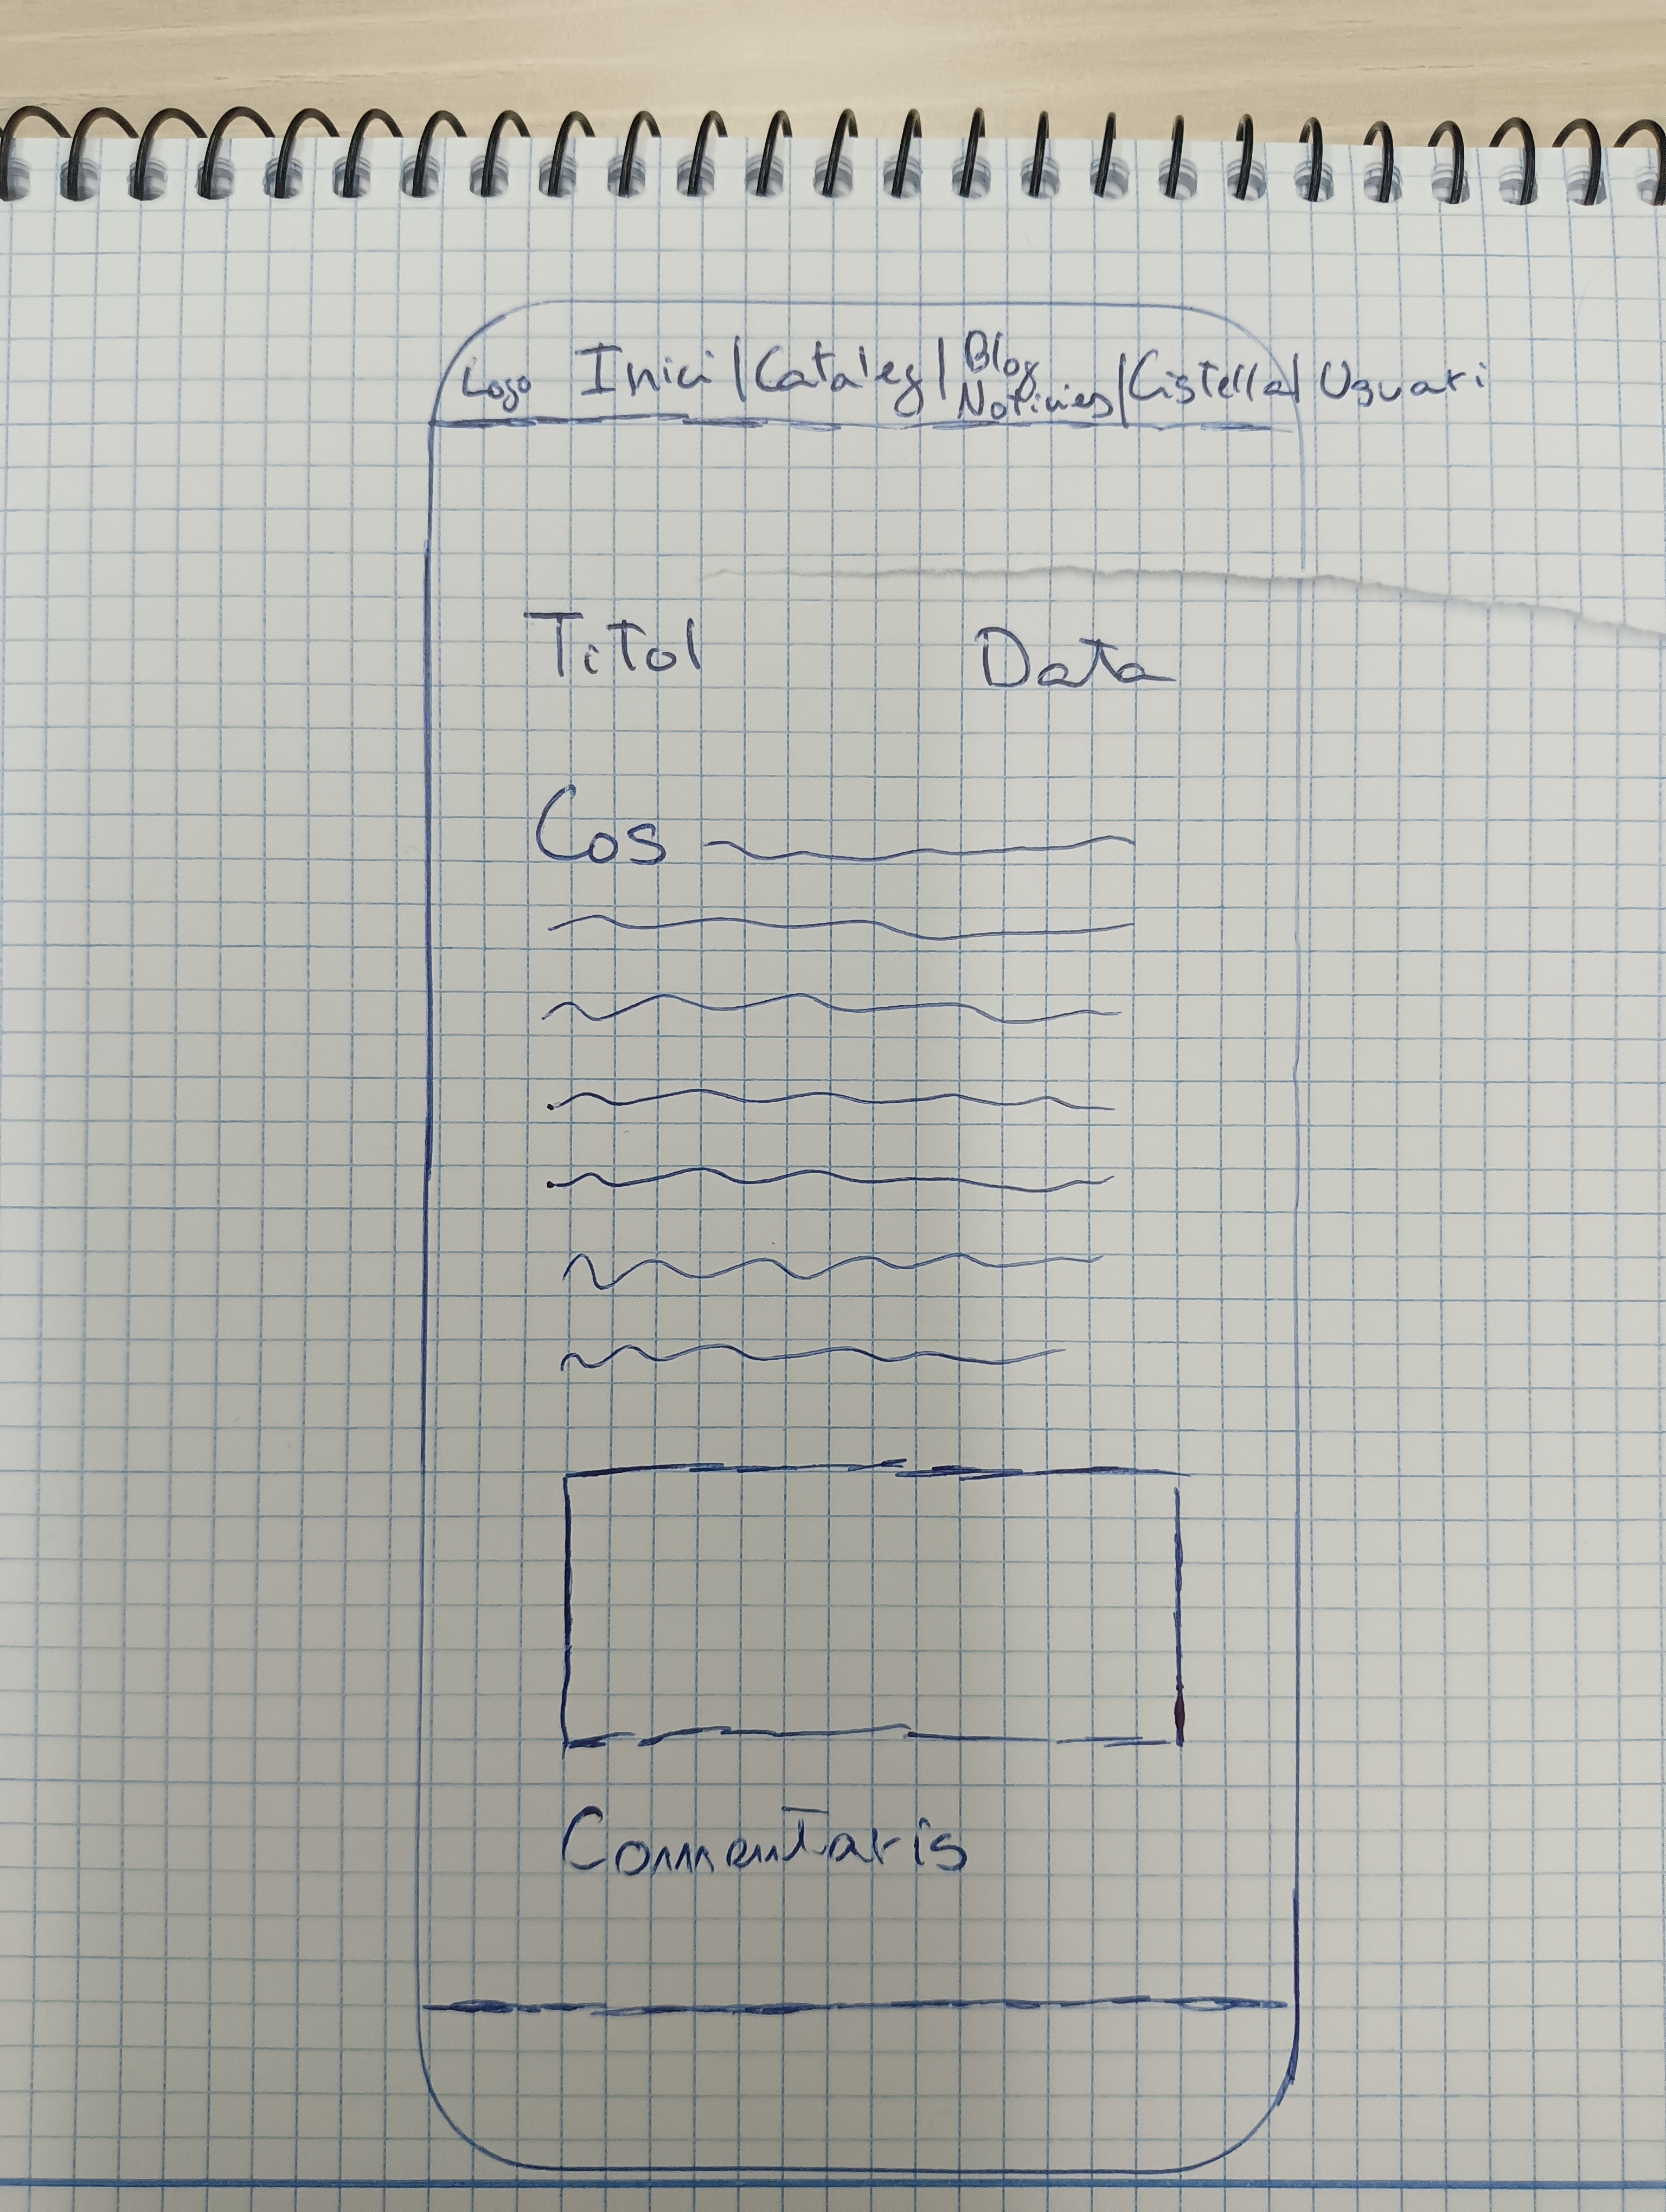 Logo Inici | Cataleg | Blog Noticies | Cistella | Usuari
Titol Data
Cos
Comentaris